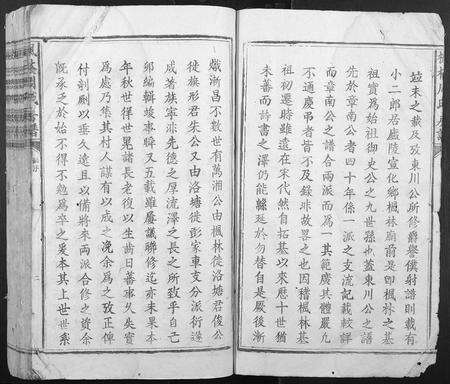 竝未之載及攷東川公所修爵譽儀射譜則載有
小二郎居廬陵宣化鄉楓林廟前是卽楓林之基
祖實爲始祖御史公之九世孫也蓋東川公之譜
先於章南公者四十年係一派之支流記載較詳
而章南公之譜合兩派而爲一其範廣其體嚴凡
不通慶弔者皆不及錄非故畧之也因稽楓林基
祖初遷時雖遠在宋代然自拓基以來歷十世猶
未蕃而詩書之澤仍能緜延於勿替自是厥後漸
熾漸昌不數世有萬湘公由楓林徙洛塘君俊公
徙旗形君朱公又由洛塘徙彭家車支分派衍遂
成著族寧非先德之厚流澤之長之所致乎自己
卯編輯竣事瞬又五載雖屢議聯修迄亦未果本
年秋世得世晃諸長老復以生齒日蕃事久失實
爲處乃集其村人謀有以成之浼余爲之攷正俾
付剞劂以垂久遠且以備將來兩派合修之資余
旣承乏於始不得不勉爲卒之爰本其上世世系